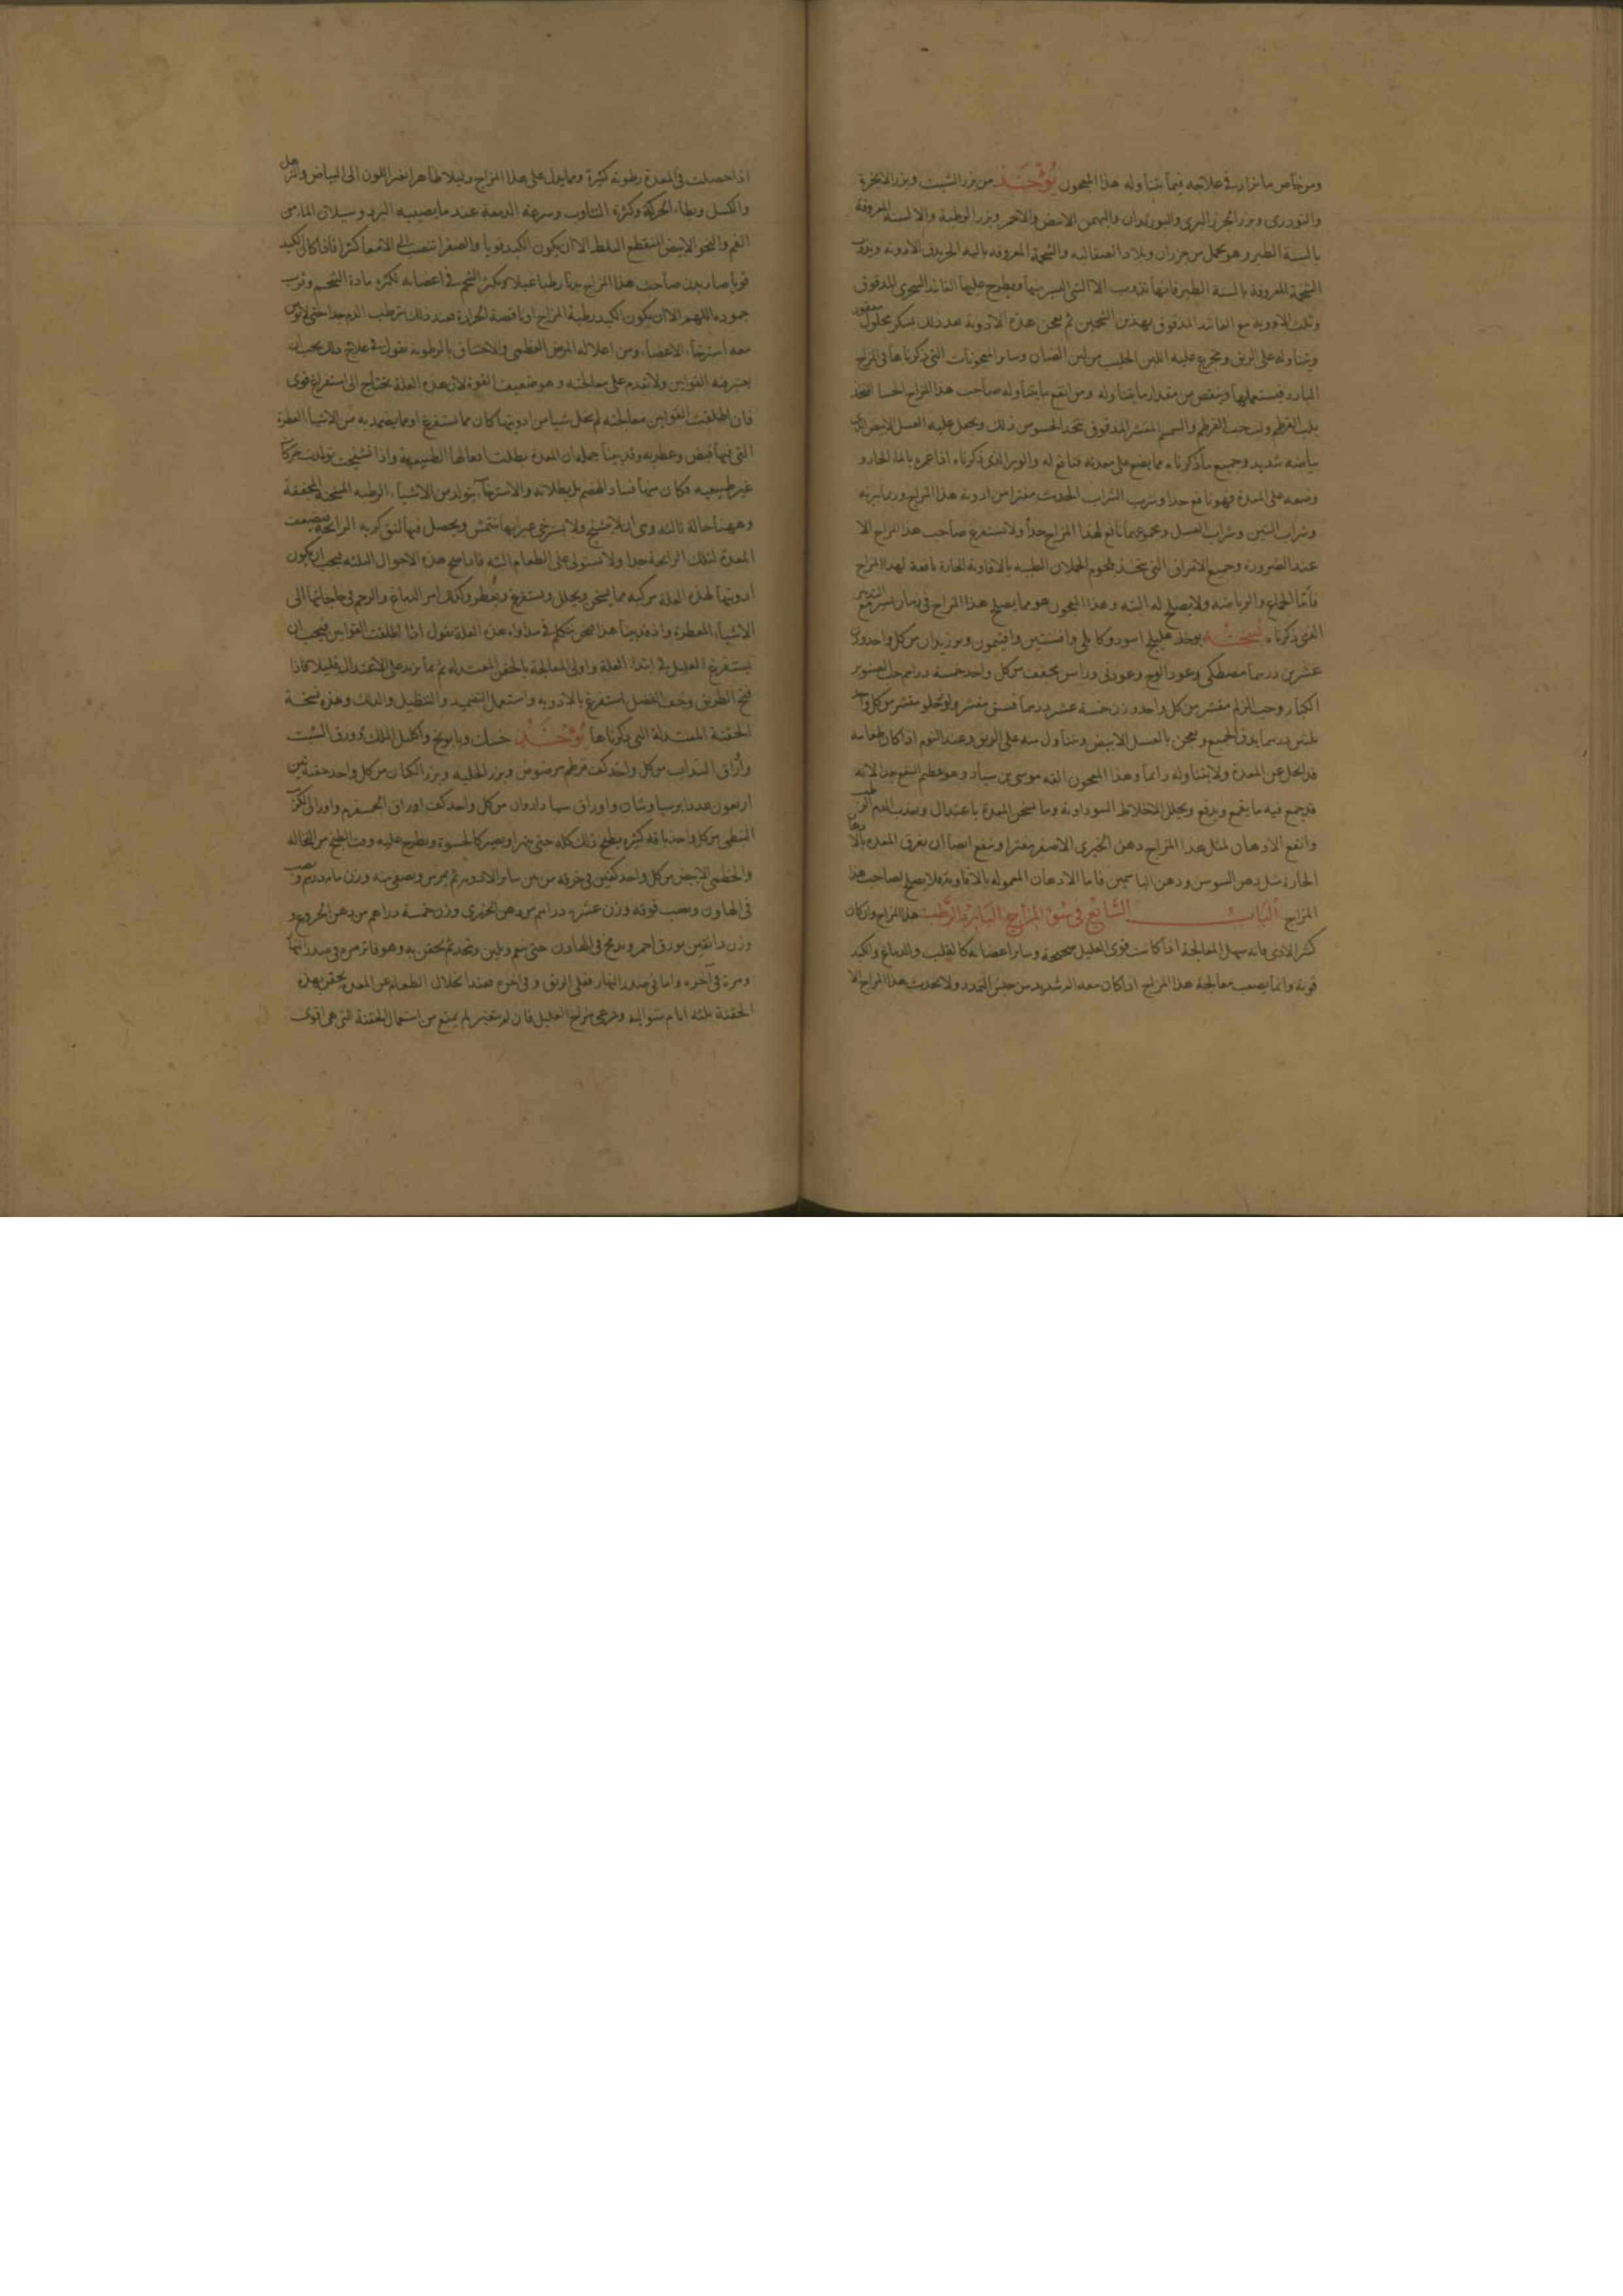 ومن خاص ما نزاد في علاجه فيما يتناوله هذا المعجون يؤخذ من بزر الشبث وبزر الانجرة
والتودرى وبزر الجزر البرى والبوزيدان والبهمن الابيض والاحمر وبزر الرطبة والالسنة المعروفة
بالسنة الطير وهو يحمل من جزران وبلاد الصقالبه والشحمة المعروفه باليه الحريدق الادوية ويذوب
الشحمة المعروفة بالسنة الطير فانها تذوب الا الشى اليسير منها ويطرح عليها الفانيد السجزى المدقوق
وتلك الادويه مع الفانيد المدقوق بهذين الشحمين ثم تعجن هذه الادوية بعد ذلك بسكر محلول معقود
ويتناوله على الريق ويتجرع عليه اللبن الحليب من لبن الضان وساير المعجونات التى ذكرناها فى المزاج
البارد فيستعملها وينقص من مقدار ما يتناوله ومن انفع ما يتناوله صاحب هذا المزاج الحسا المتخذ
بلب القرطم ولب حب القرطم والسمسم المقشر المدقوق يتخذ الحسو من ذلك ويجعل عليه العسل الابيض الذى
بياضه شديد وجميع ما ذكرناه مما يضع على معدته فنافع له والوبر الذى ذكرناه اذا غمره بالماء الحار و
وضعه على المعدة فهو نافع جدا وشرب الشراب الحديث مفترا من ادوية هذا المزاج وربما برئه
وشراب التين وشراب العسل ومجموعهما نافع لهذا المزاج جدا ولا تستفرغ صاحب هذا المزاج الا
عند الضرورة وجميع الامراق التى تتخذ بلحوم الحملان الطيبه بالافاويه الحارة نافعة لهذا المزاج
فاما الجماع والرياضه ولا يصلح له البته وهذا المعجون هو مما يصلح هذا المزاج فى زمان يسير مع التدبير
الذى ذكرناه نسخته يوخذ هليلج اسود وكابلى وافسنتين وافيتمون وبوزيدان من كل واحد وزن
عشرين درهما مصطكى وعود الوج وعود نى وراسن مجفف من كل واحد خمسة دراهم حب الصنوبر
الكبار وحب الزلم مقشر من كل واحد وزن خمسة عشر درهما فستق مقشر ولوز حلو مقشر من كل واحد
ثلثين درهما يدق الجميع ويعجن بالعسل الابيض ويتناول منه على الريق وعند النوم اذا كان طعامه
قد انحل عن المعدة ولا يتناوله دائما وهذا المعجون الفه موسى بن سيار وهو عظيم النفع جدا لانه
قد جمع فيه ما يقمع ويدفع ويحلل الاخلاط السوداوية وما يسخن المعدة باعتدال
وانفع الادهان لمثل هذا المزاج دهن الخيرى الاصفر مفترا وينفع ايضا ان يعرق المعدة بالادهان
الحارة مثل دهن السوسن ودهن الياسمين فاما الادهان المعموله بالافاويه فلا يصلح لصاحب هذا
المزاج الباب السابع فى سوء المزاج البارد الرطب هذا المزاج وان كان
كثير الاذى فانه سهل المعالجة اذا كانت قوى العليل صحيحة وساير اعضائه كالقلب والدماغ والكبد
قوية وانما يصعب معالجة هذا المزاج اذا كان معه الم شديد من جنس التمدد ولا يحدث هذا المزاج الا
اذا حصلت فى المعدة رطوبة كثيرة ومما يدل على هذا المزاج دليلا ظاهرا تغير اللون الى البياض والترهل
والكسل وبطاء الحركة وكثرة التثاوب وسرعة الدمعة عند ما يصيبه البرد وسيلان الماء من
الفم والنجو الابيض المنقطع الا ان يكون الكبد قويا والصفرا تنصب الى الامعا كثيرا فاذا كان الكبد
قويا صار بدن صاحب هذا المزاج بدنا رطبا عبلا ويكثر الشحم فى اعضائه لكثرة مادة الشحم وقرب
جموده اللهم الا ان يكون الكبد رطبة المزاج او ناقصة الحرارة فعند ذلك يترطب الدم جدا حتى لا يؤمن
معه استرخاء الاعضاء ومن اعلاله المرض العظمى والاختناق بالرطوبة نقول فى علاج ذلك يجب ان
يعتبر فيه القوانين ولا تقدم على معالجته وهو ضعيف القوة لان هذه العلة تحتاج الى استفراغ قوى
فان اطلقت القوانين معالجته لم يخل شيا من ادويتها كان مما يستفرغ او مما يضمد به من الاشياء العطرة
التى فيها قبض وعطريه وقد بينا جملة ان المعدة بطلت افعالها الطبيعية واذا تشنجت تولدت حركات
غير طبيعيه فكان منها فساد الهضم بل بطلانه والاسترخاء يتولد من الاشياء الرطبه المسخنة المجففة
وههنا حالة ثالثه وهى ان لا يتشنج ولا يسترخى غير انها تتمتن ويحصل فيها لثق كريه الرائحة فيضعف
المعدة لتلك الرائحة جدا ولا تستولى على الطعام البته فاذا صح هذه الاحوال الثلثه فيجب ان يكون
ادويتها لهذه العلة مركبه مما يسخن ويحلل ويستفرغ ويعطر وكذلك امر الدماغ والرحم فى حاجاتها الى
الاشياء المعطرة واذ قد بينا هذا فنحن نتكلم فى مداواه هذه العلة نقول اذا اطلقت القوانين فيجب ان
يستفرغ العليل فى ابتداء العلة واولى المعالجة بالحقن المعتدله ثم بما يزيد على الاعتدال قليلا فاذا
فتح الطريق وخف الفضل استفرغ بالادويه واستعمل التضميد والتنظيل والدلك وهذه نسخة
الحقنة المعتدلة التى ذكرناها يؤخذ حسك وبابونج واكليل الملك وورق الشبث
واوراق السذاب من كل واحد كف قرطم مرضوض وبزر الحلبه وبزر الكتان من كل واحد حفنة تين
اربعون عددا برسياوشان واوراق من كل واحد كف اوراق الجمسفرم واوراق الكرنب
النبطى من كل واحد باقه كثيرة يطبخ ذلك كله حتى يتهرا ويصير كالحسوة ويطرح عليه وقت الطبخ من النخالة
والخطمى الابيض من كل واحد كفين فى خرقه من بين ساير الادوية ثم يمرس ويصفى منه وزن مائه درهم ويصب
فى الهاون ويصب فوقه وزن عشرة دراهم من دهن الخيرى وزن خمسة دراهم من دهن الخروع و
وزن دانقين بورق احمر ويدمج فى الهاون حتى ينعم ويلين ويتحد ثم يحقن به وهو فاتر مرة فى صدر النهار
ومرة فى آخره واما فى صدر النهار فعلى الريق وفى آخره فعند انحلال الطعام عن المعدة يحقن بهذه
الحقنة ثلثه ايام متواليه وترعى مزاج العليل فان لم يتغير لم يمنع من استعمال الحقنة التى هى اقوى